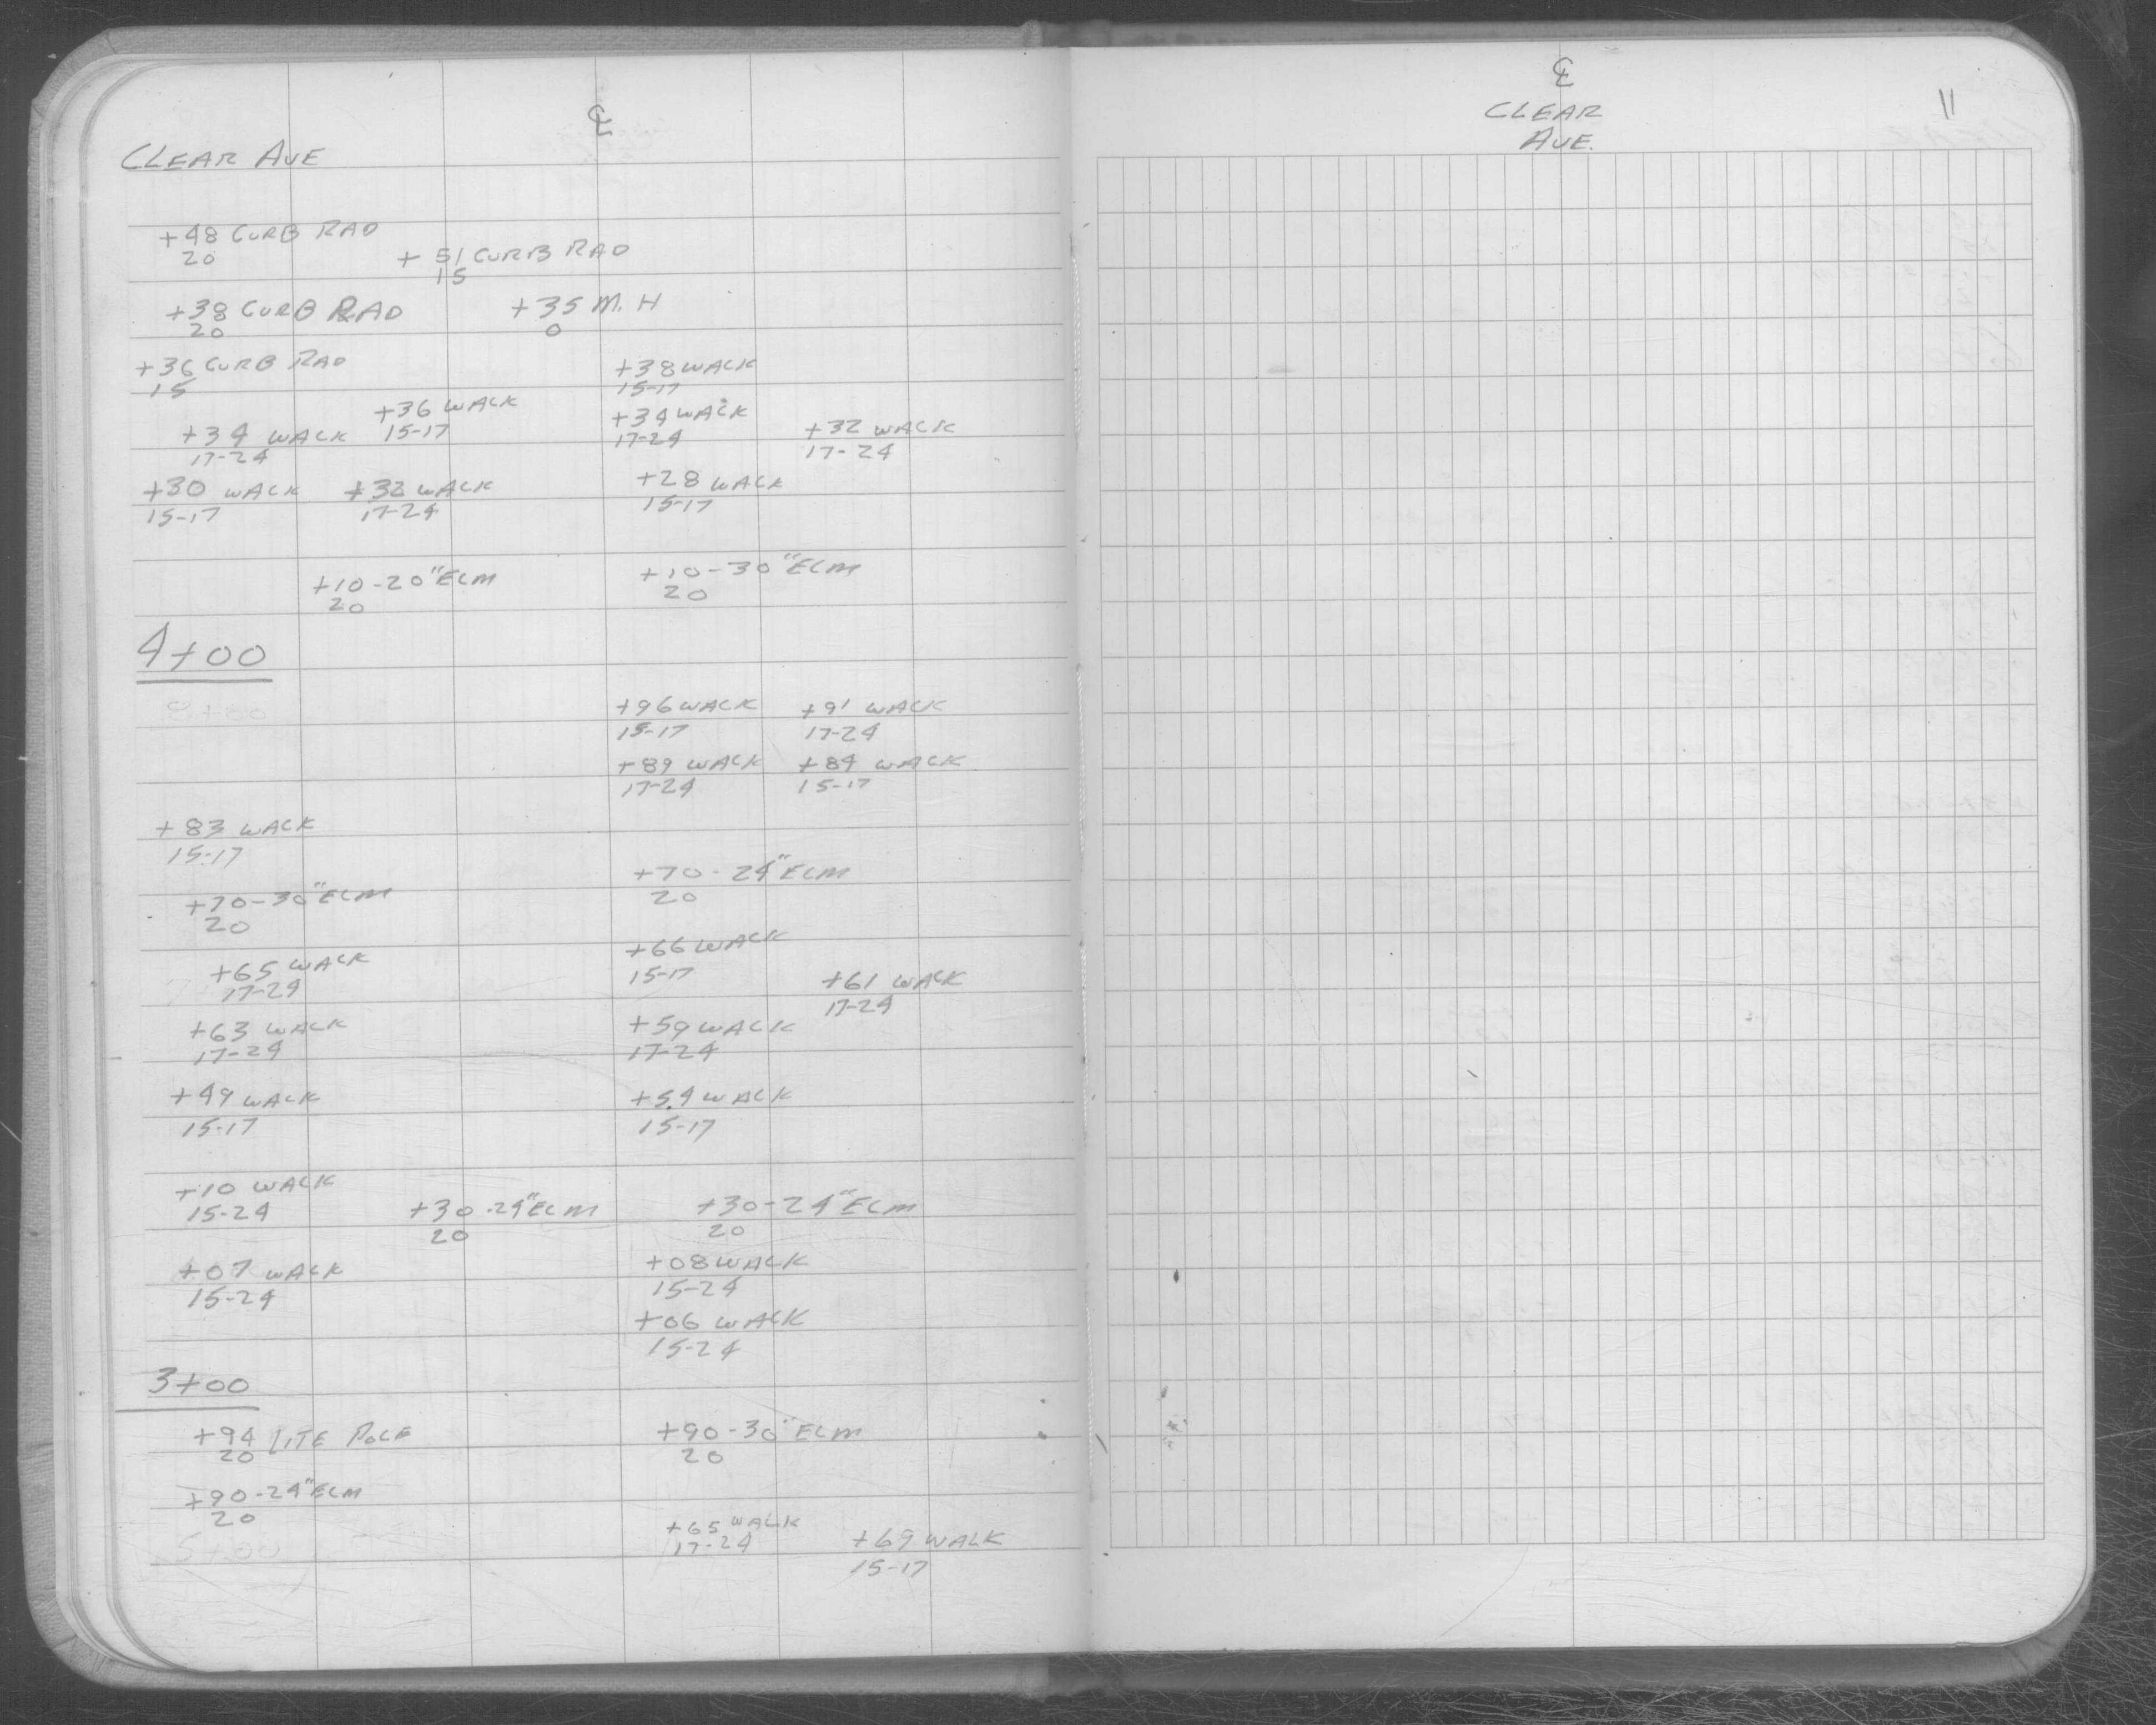 ℄
CLEAR AVE
+48 CURB RAD
20
+ 51 CURB RAD
15
+38 CURB RAD +35 M.H
20 0
+36 CURB RAD +38 WALK
15 15-17
+36 WALK +34 WALK
+34 WALK 15-17 17-24 +32 WALK
17-24 17-24
+30 WALK +32 WALK +28 WALK
15-17 17-24 15-17
+10-20" ELM +10-30" ELM
20 20
4+00
+96 WALK +91 WALK
15-17 17-24
+89 WALK +84 WALK
17-24 15-17
+83 WALK
15-17
+70-24" ELM
20
+70-30" ELM
20
+66 WALK
15-17
+65 WALK +61 WALK
17-24 17-24
+63 WALK +59 WALK
17-24 17-24
+49 WALK +54 WALK
15-17 15-17
+10 WALK
15-24
+30-24" ELM +30-24" ELM
20 20
+07 WALK +08 WALK
15-24 15-24
+06 WALK
15-24
3+00
+94 LITE POLE +90-30" ELM
20 20
+90-24" ELM
20
+65 WALK +69 WALK
17-24 15-17
℄
CLEAR
AVE.
11